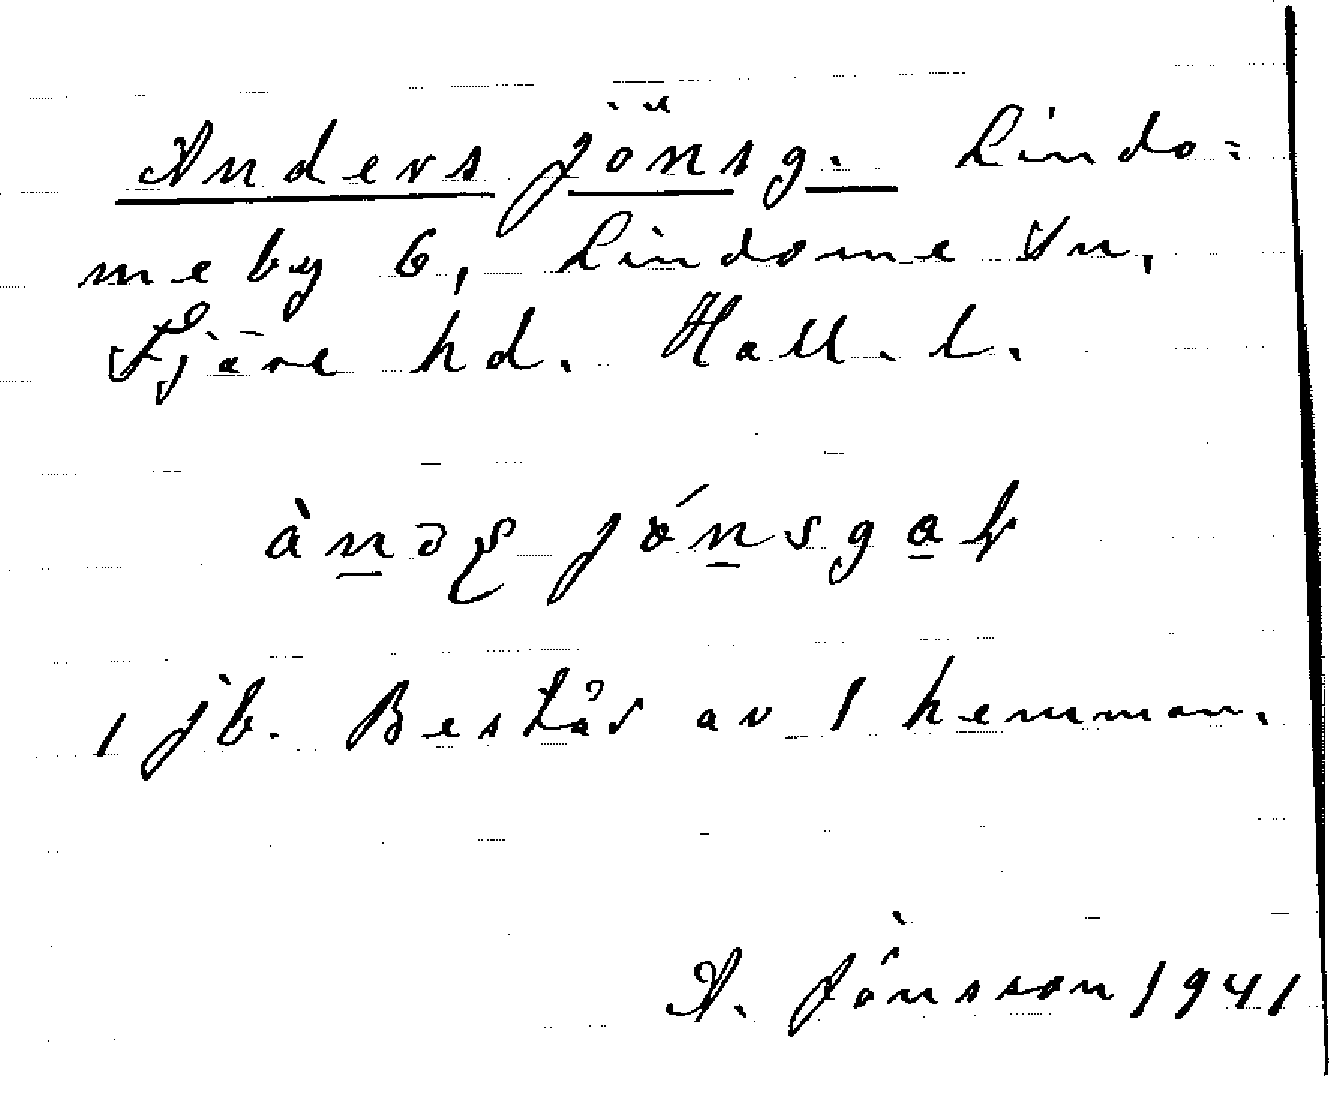 Anders Jönsg. Lindo=
me by 6, Lindome sn,
Fjäre hd. Hall. l.
1 jb. Består av 1 hemman.
A. Jönsson 1941